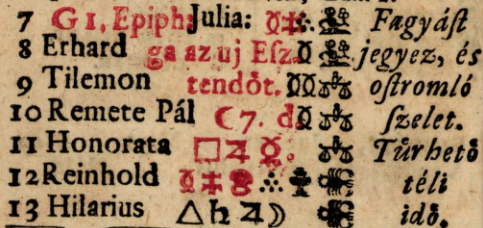 7 G 1. Epiph: Julia: ☿ ⁂ Fagyáſt
8 Erhard ga az uj Eſz- jegyez, és
9 Tilemon tendőt. oſtromló
10 Remete Pál ☾ 7. d. ſzelet.
11 Honorata □ ♃ ☿. Tűrhető
12 Reinhold téli
13 Hilarius △ ♄ ♃ ☽ idő.